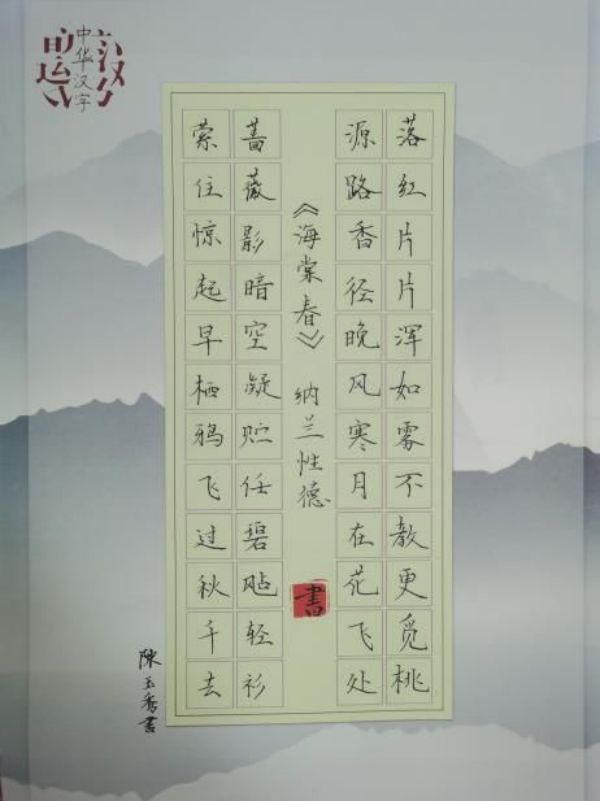 落红片片浑如雾不教更觅桃
源路香径晚风寒月在花飞处
《海棠春》 纳兰性德
書
蔷薇影暗空凝贮任碧飐轻衫
萦住惊起早栖鸦飞过秋千去
陳玉秀書
中华汉字